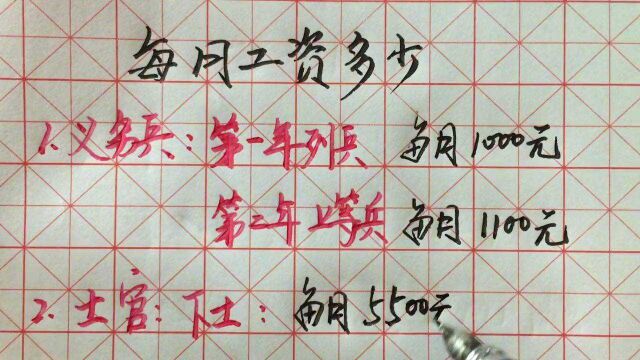 每月工资多少
1.义务兵:第一年列兵 每月1000元
第二年上等兵 每月1100元
2.士官:下士:每月5500元